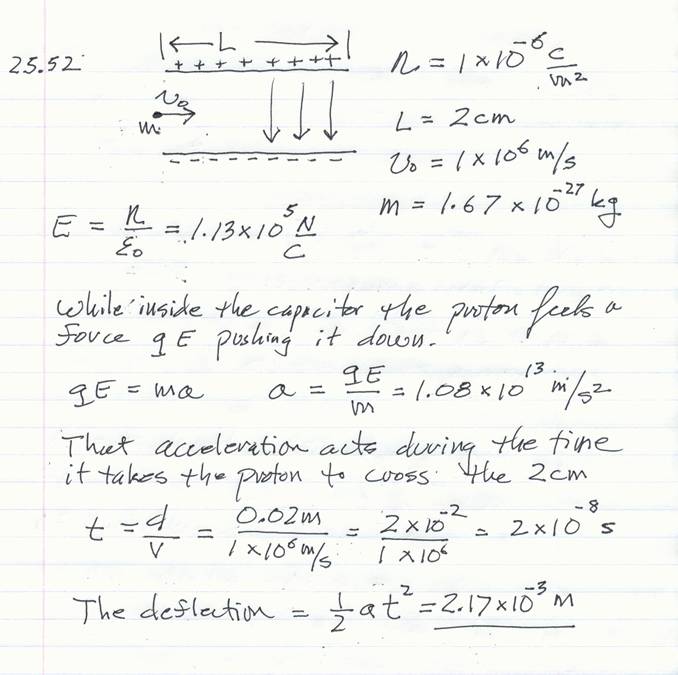 25.52
|← L →|
+ + + + + + + +
η = 1 × 10⁻⁶ C/m²
v₀
m
L = 2 cm
- - - - - - -
v₀ = 1 × 10⁶ m/s
m = 1.67 × 10⁻²⁷ kg
E = η/ε₀ = 1.13 × 10⁵ N/C
While inside the capacitor the proton feels a
force qE pushing it down.
qE = ma a = qE/m = 1.08 × 10¹³ m/s²
That acceleration acts during the time
it takes the proton to cross the 2cm
t = d/v = 0.02m/1 × 10⁶ m/s = 2 × 10⁻²/1 × 10⁶ = 2 × 10⁻⁸ s
The deflection = ½ at² = 2.17 × 10⁻³ m